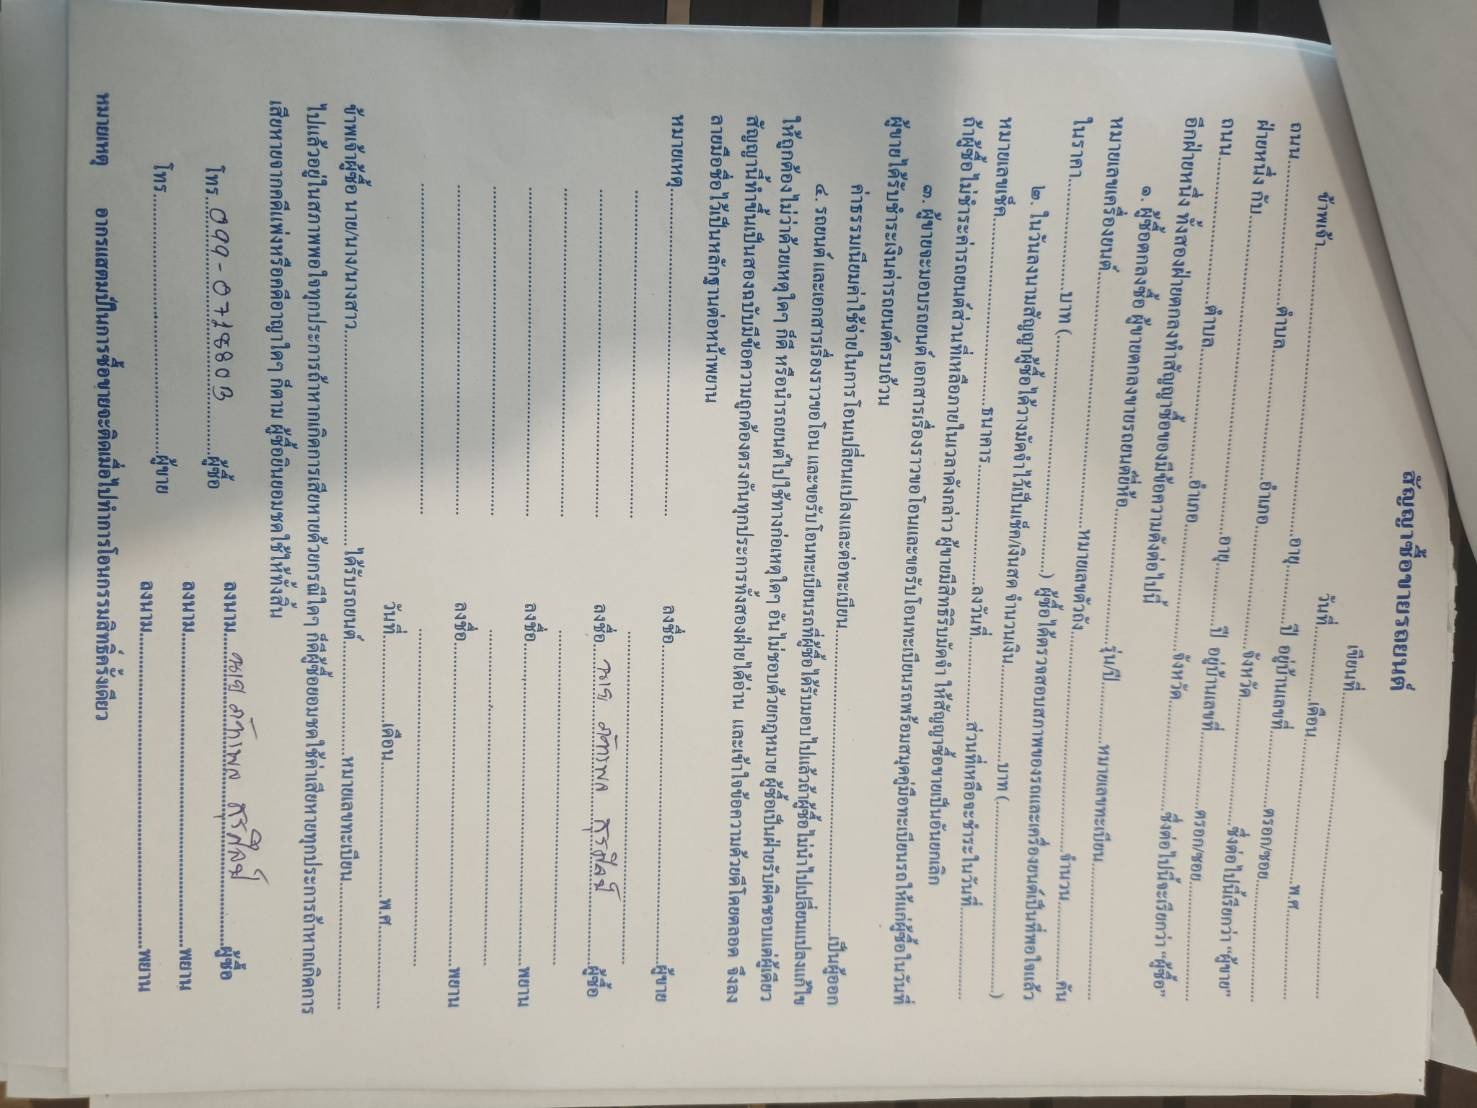 สัญญาซื้อขายรถยนต์
เขียนที่....................
วันที่............เดือน....................พ.ศ.............
ข้าพเจ้า....................อายุ........ปี อยู่บ้านเลขที่............ตรอก/ซอย............
ถนน............ตำบล............อำเภอ............จังหวัด............ซึ่งต่อไปนี้เรียกว่า "ผู้ขาย"
ฝ่ายหนึ่ง กับ....................อายุ........ปี อยู่บ้านเลขที่............ตรอก/ซอย............
ถนน............ตำบล............อำเภอ............จังหวัด............ซึ่งต่อไปนี้จะเรียกว่า "ผู้ซื้อ"
อีกฝ่ายหนึ่ง ทั้งสองฝ่ายตกลงทำสัญญาซื้อของมีข้อความดังต่อไปนี้
๑. ผู้ซื้อตกลงซื้อ ผู้ขายตกลงขายรถยนต์ยี่ห้อ............รุ่น/ปี............หมายเลขทะเบียน............
หมายเลขเครื่องยนต์....................หมายเลขตัวถัง....................จำนวน............คัน
ในราคา............บาท (....................) ผู้ซื้อได้ตรวจสอบสภาพของรถและเครื่องยนต์เป็นที่พอใจแล้ว
๒. ในวันลงนามสัญญาผู้ซื้อได้วางมัดจำไว้เป็นเช็ค/เงินสด จำนวนเงิน............บาท (....................)
หมายเลขเช็ค....................ธนาคาร............ลงวันที่............ส่วนที่เหลือจะชำระในวันที่............
ถ้าผู้ซื้อไม่ชำระค่ารถยนต์ส่วนที่เหลือภายในเวลาดังกล่าว ผู้ขายมีสิทธิริบมัดจำ ให้สัญญาซื้อขายเป็นอันยกเลิก
๓. ผู้ขายจะมอบรถยนต์ เอกสารเรื่องราวขอโอนและขอรับโอนทะเบียนรถพร้อมสมุดคู่มือทะเบียนรถให้แก่ผู้ซื้อในวันที่
ผู้ขายได้รับชำระเงินค่ารถยนต์ครบถ้วน
ค่าธรรมเนียมค่าใช้จ่ายในการโอนเปลี่ยนแปลงและต่อทะเบียน....................เป็นผู้ออก
๔. รถยนต์ และเอกสารเรื่องราวขอโอน และขอรับโอนทะเบียนรถที่ผู้ซื้อได้รับมอบไปแล้วถ้าผู้ซื้อไม่นำไปเปลี่ยนแปลงแก้ไข
ให้ถูกต้องไม่ว่าด้วยเหตุใดๆ ก็ดี หรือนำรถยนต์ไปใช้ทางก่อเหตุใดๆ อันไม่ชอบด้วยกฎหมาย ผู้ซื้อเป็นฝ่ายรับผิดชอบแต่ผู้เดียว
สัญญานี้ทำขึ้นเป็นสองฉบับมีข้อความถูกต้องตรงกันทุกประการทั้งสองฝ่ายได้อ่าน และเข้าใจข้อความด้วยดีโดยตลอด จึงลง
ลายมือชื่อไว้เป็นหลักฐานต่อหน้าพยาน
หมายเหตุ....................ลงชื่อ....................ผู้ขาย
ลงชื่อ....................ผู้ซื้อ
ลงชื่อ....................พยาน
ลงชื่อ....................พยาน
วันที่............เดือน....................พ.ศ.............
ข้าพเจ้าผู้ซื้อ นาย/นาง/นางสาว....................ได้รับรถยนต์............หมายเลขทะเบียน............
ไปแล้วอยู่ในสภาพพอใจทุกประการถ้าหากเกิดการเสียหายด้วยกรณีใดๆ ก็ดีผู้ซื้อยอมชดใช้ค่าเสียหายทุกประการถ้าหากเกิดการ
เสียหายจากคดีแพ่งหรือคดีอาญาใดๆ ก็ตาม ผู้ซื้อยินยอมชดใช้ให้ทั้งสิ้น
ลงนาม....................ผู้ซื้อ
โทร....................ผู้ซื้อ
ลงนาม....................พยาน
โทร....................ผู้ขาย
ลงนาม....................พยาน
หมายเหตุ อากรแสตมป์ในการซื้อขายจะติดเมื่อไปทำการโอนกรรมสิทธิ์ครั้งเดียว